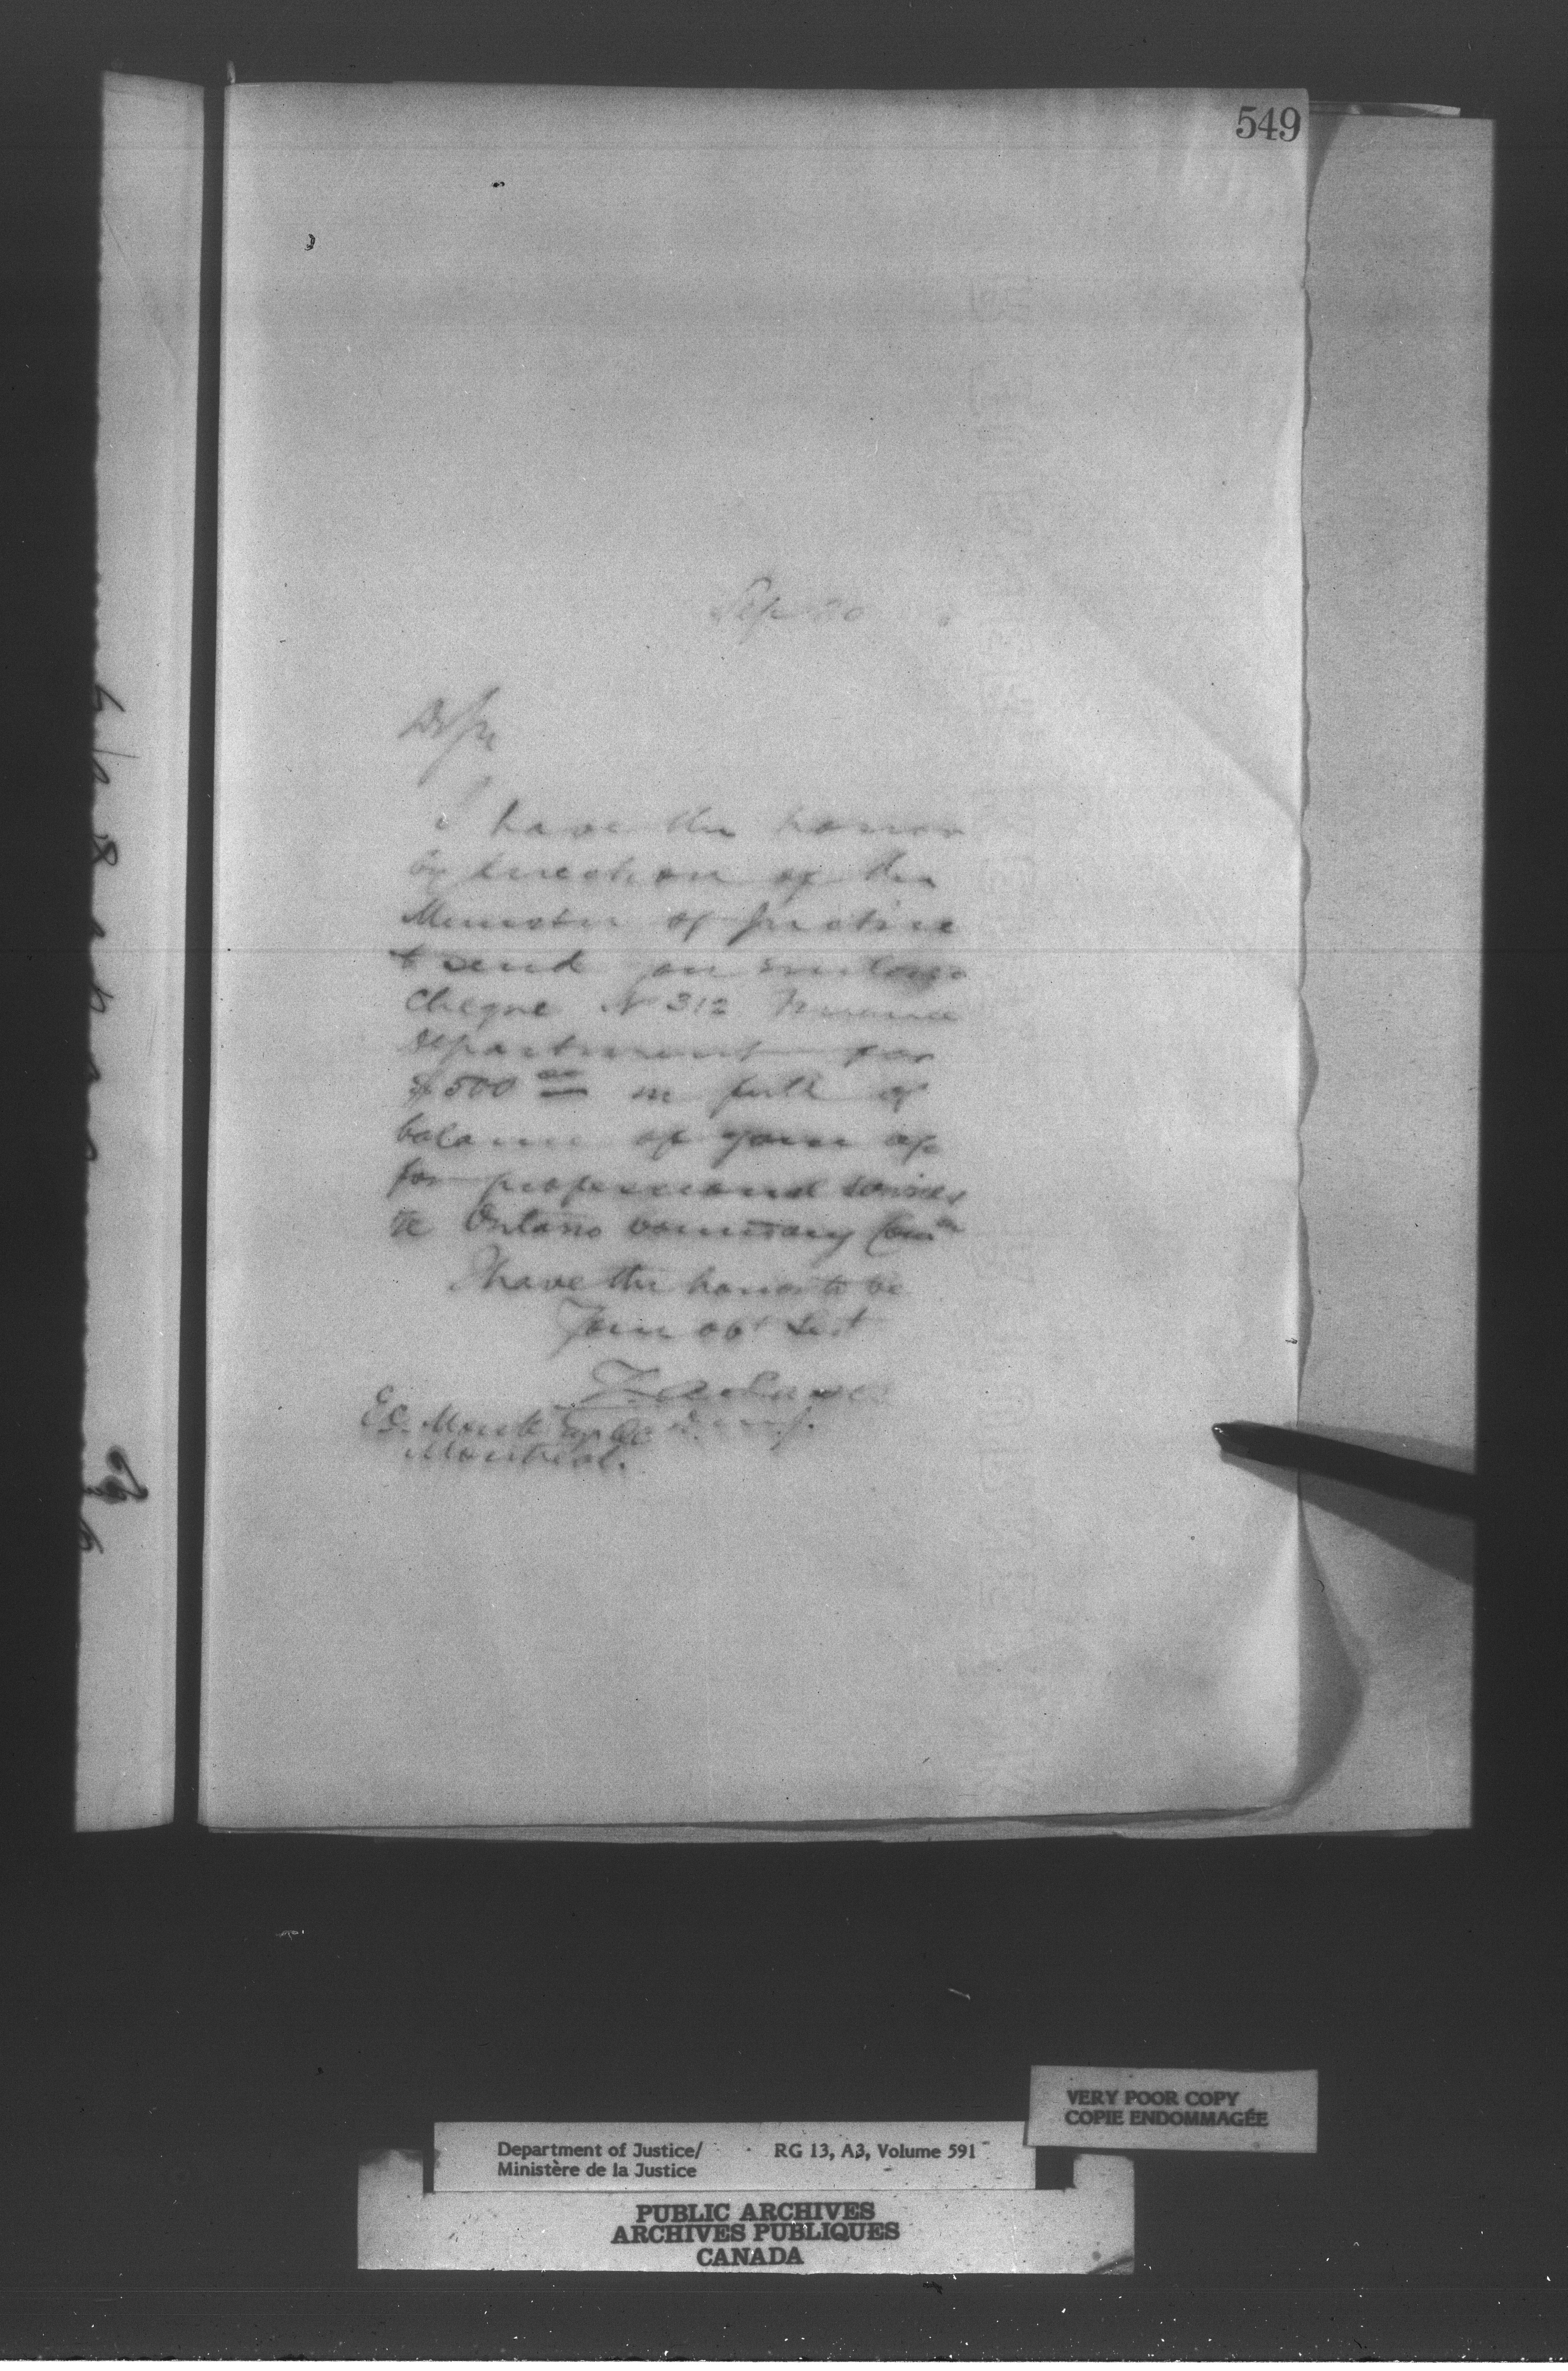 549
Sep 30
D Sir
I have the honor
by direction of the
Minister of Justice
to send you enclosed
Cheque No 312 Finance
Department for
$500 00 in full of
balance of your a/c
for professional services
re Ontario boundary Comn
I have the honor to be
Your obt Sert
Z. A. Lash
D. M. J.
E C. Monk Esq QC
Montreal.
VERY POOR COPY
COPIE ENDOMMAGÉE
Department of Justice/ RG 13, A3, Volume 591
Ministère de la Justice
PUBLIC ARCHIVES
ARCHIVES PUBLIQUES
CANADA